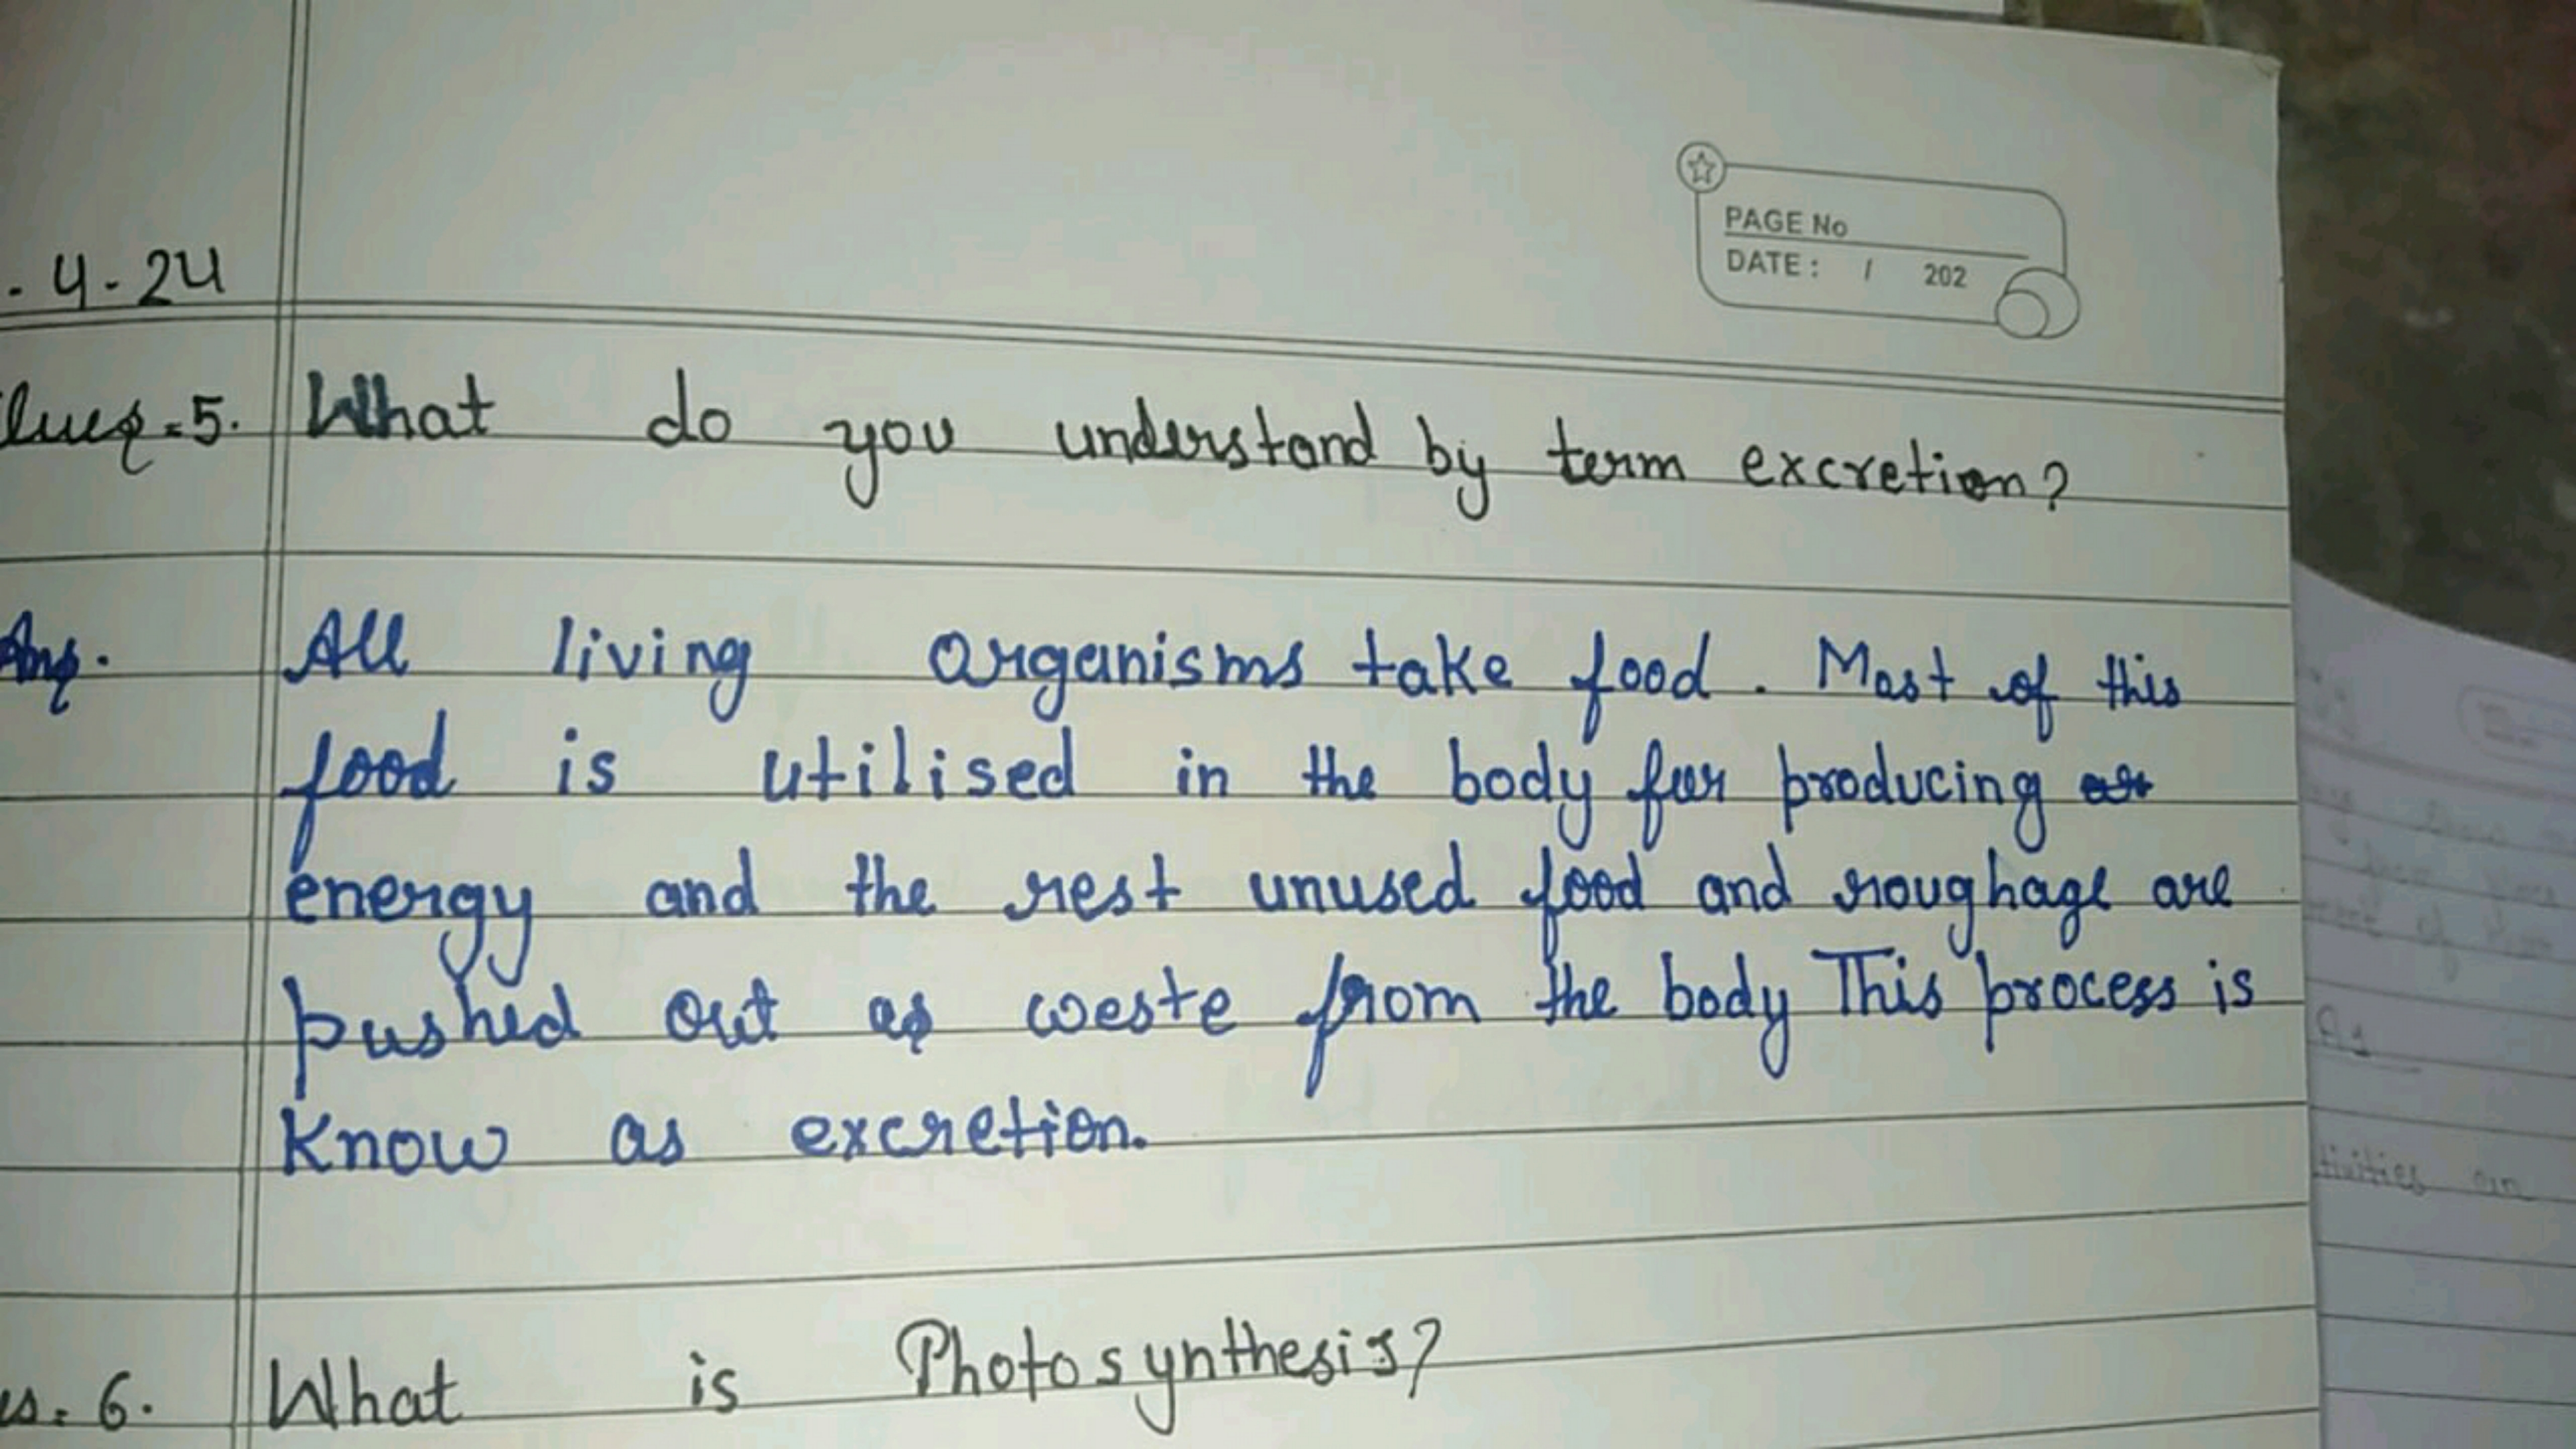 PAGE No
DATE : / 202
. 4 - 24
Ques = 5. What do you understand by term excretion?
Ans. All living organisms take food. Most of this
food is utilised in the body for producing
energy and the rest unused food and roughage are
pushed out as weste from the body This process is
Know as excretion.
s = 6. What is Photosynthesis?